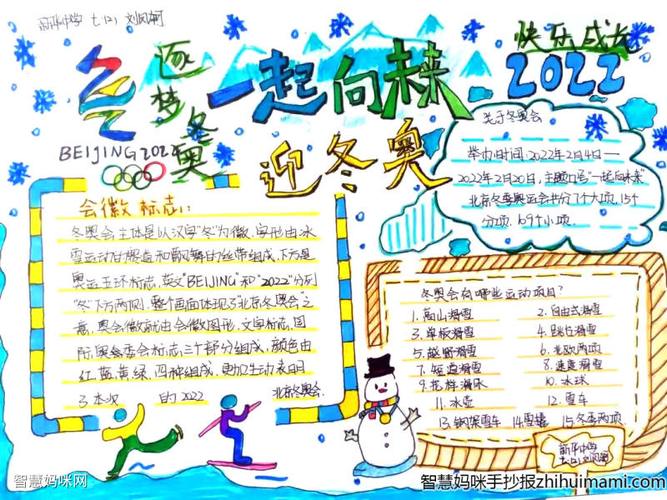 新华中学 七.(2) 刘风桐
逐梦冬奥
一起向未来
快乐成长
2022
BEIJING 2022
迎冬奥
关于冬奥会
举办时间:2022年2月4日—
2022年2月20日,主题口号"一起向未来"
北京冬季奥运会共分7个大项,15个
分项,109个小项。
会徽标志:
冬奥会主体是以汉字"冬"为徽,字形由冰
雪运动
和飘舞的丝带组成,下方是
奥运五环标志,英文"BEIJING"和"2022"分列
"冬"下方两侧,整个画面体现了北京冬奥会之
意,奥会徽就由会徽图形,文字标志,国
际奥委会标志三个部分组成,颜色由
红,蓝,黄,绿,四种组成,更加生动表明
了本次 的2022 北京冬奥会.
冬奥会有哪些运动项目?
1.高山滑雪 2.自由式滑雪
3.单板滑雪 4.跳台滑雪
5.越野滑雪 6.北欧两项
7.短道滑雪 8.速度滑雪
9.花样滑冰 10.冰球
11.冰壶 12.雪车
13.钢架雪车 14.雪橇 15.冬季两项
新华中学
智慧妈咪网
智慧妈咪手抄报zhihuimami.com